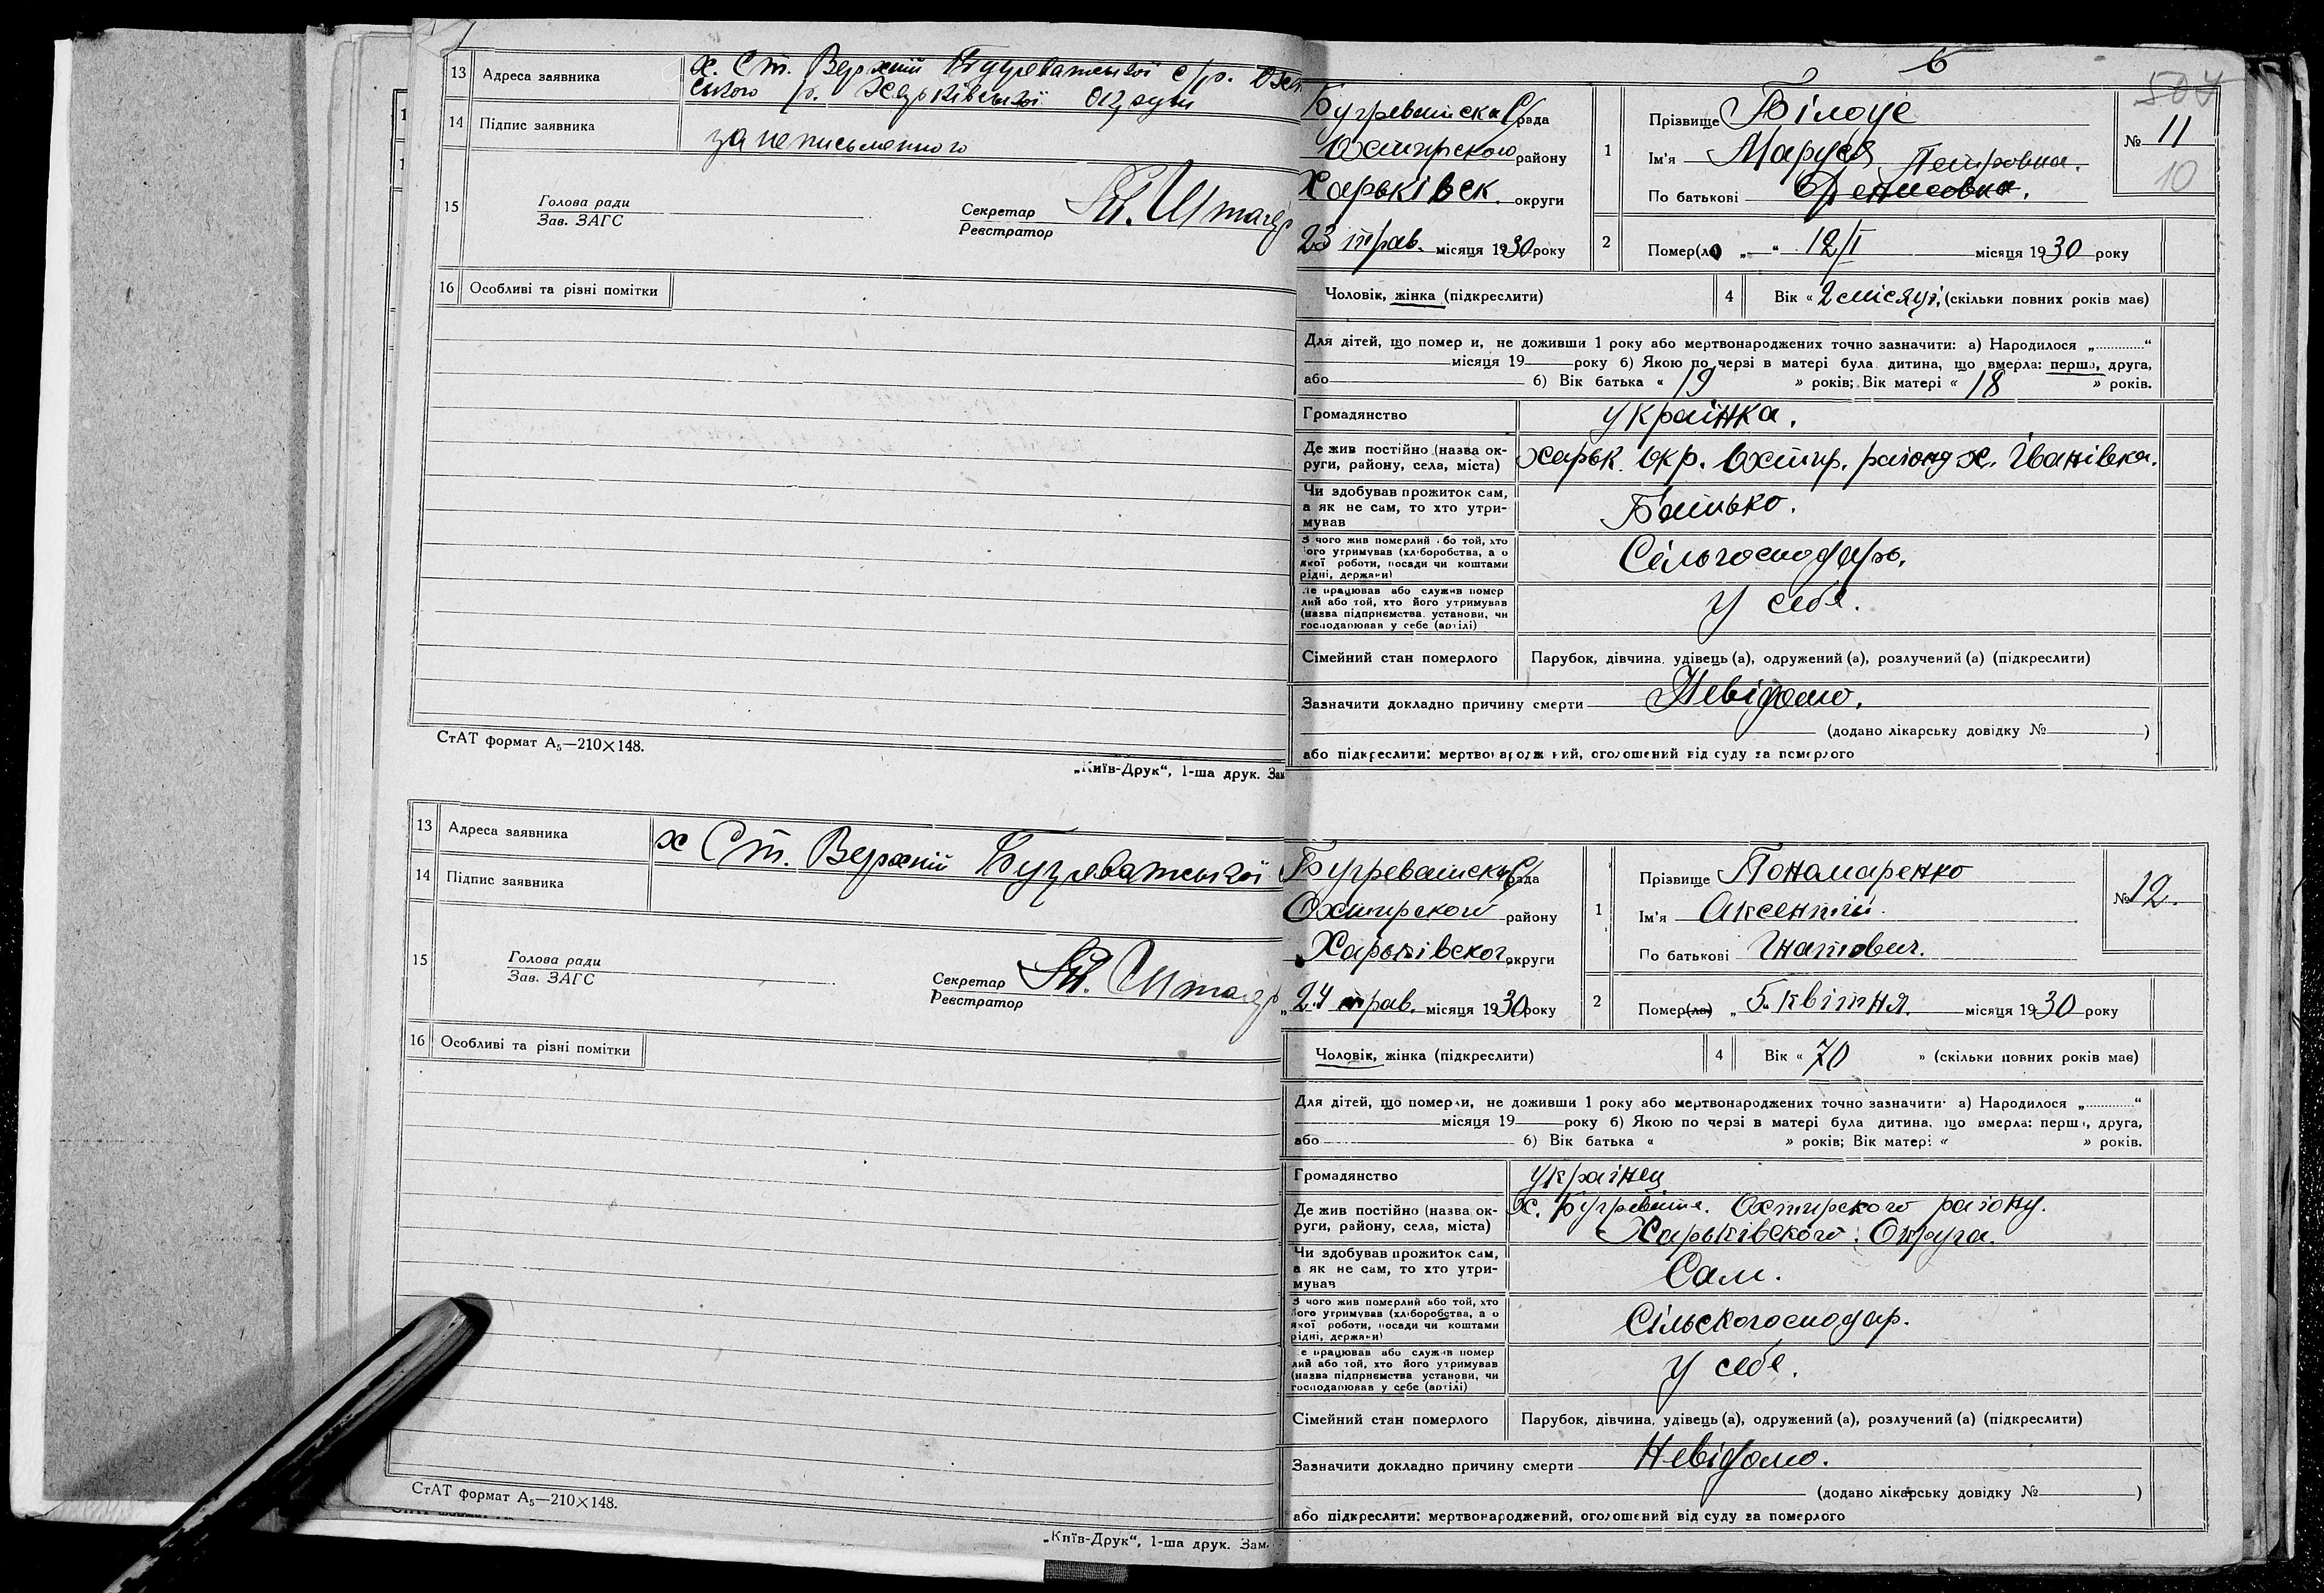 13 Адреса заявника х. Ст. Верхній Бугреватської с/р. Охт
ського р. Харьківської округи
14 Підпис заявника за неписьменного
15 Голова ради
Зав. ЗАГС
Секретар
Реєстратор
16 Особливі та різні помітки
СтАТ формат А₅—210×148.
„Київ-Друк“, 1-ша друк. Зам
13 Адреса заявника х Ст. Верхній Бугреватської
14 Підпис заявника
15 Голова ради
Зав. ЗАГС
Секретар
Реєстратор
16 Особливі та різні помітки
СтАТ формат А₅—210×148.
„Київ-Друк“, 1-ша друк. Зам.
6
507
Бугреватска С/рада
Охтирского району
Харьківск. округи
23 трав. місяця 1930 року
1 Прізвище Білоус
Ім'я Маруся Петровна.
По батькові Денисовна.
№ 11
10
2 Помер(ла) „—“ 12/I місяця 1930 року
Чоловік, жінка (підкреслити) 4 Вік « 2 місяці, (скільки повних років має)
Для дітей, що помер и, не доживши 1 року або мертвонароджених точно зазначити: а) Народилося „............“
місяця 19 року б) Якою по черзі в матері була дитина, що вмерла: перша, друга,
або б) Вік батька « 19 » років; Вік матері « 18 » років.
Громадянство українка.
Де жив постійно (назва ок-
руги, району, села, міста) Харьк. окр. Охтир. району х. Іванівка.
Чи здобував прожиток сам,
а як не сам, то хто утри-
мував Батько.
З чого жив померлий або той, хто
його утримував (хліборобства, а о
якої роботи, посади чи коштами
рідні, держави) Сільгосподарь.
Де працював або служив помер
лий або той, хто його утримував
(назва підприємства, установи, чи
господарював у себе (артілі) У себе.
Сімейний стан померлого Парубок, дівчина, удівець (а), одружений (а), розлучений (а) (підкреслити)
Зазначити докладно причину смерти Невідомо.
(додано лікарську довідку № )
або підкреслити: мертвонароджений, оголошений від суду за померлого
Бугреватска С/рада
Охтирского району
Харьківског округи
„24 трав. місяця 1930 року
1 Прізвище Пономаренко
Ім'я Аксентій.
По батькові Гнатович.
№ 12.
2 Помер(ла) „5“ квітня. місяця 1930 року
Чоловік, жінка (підкреслити) 4 Вік « 70 » (скільки повних років має)
Для дітей, що померли, не доживши 1 року або мертвонароджених точно зазначити: а) Народилося „............“
місяця 19 року б) Якою по черзі в матері була дитина, що вмерла: перша, друга,
або б) Вік батька « » років; Вік матері « » років.
Громадянство українец
Де жив постійно (назва ок-
руги, району, села, міста) Х. Бугревате. Охтирского району.
Харьківского Округа.
Чи здобував прожиток сам,
а як не сам, то хто утри-
мував Сам.
З чого жив померлий або той, хто
його утримував (хліборобства, а о
якої роботи, посади чи коштами
рідні, держави) Сільскогосподар.
Де працював або служив помер
лий або той, хто його утримував
(назва підприємства, установи, чи
господарював у себе (артілі) У себе.
Сімейний стан померлого Парубок, дівчина, удівець (а), одружений (а), розлучений (а) (підкреслити)
Зазначити докладно причину смерти Невідомо.
(додано лікарську довідку № )
або підкреслити: мертвонароджений, оголошений від суду за померлого